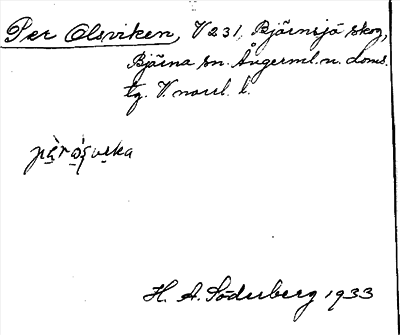 Per Olsviken, V 231, Bjärnsjö skog,
Bjärna sn. Ångerml. n. doms.
tg. V. norrl. l.
H. A. Söderberg 1933